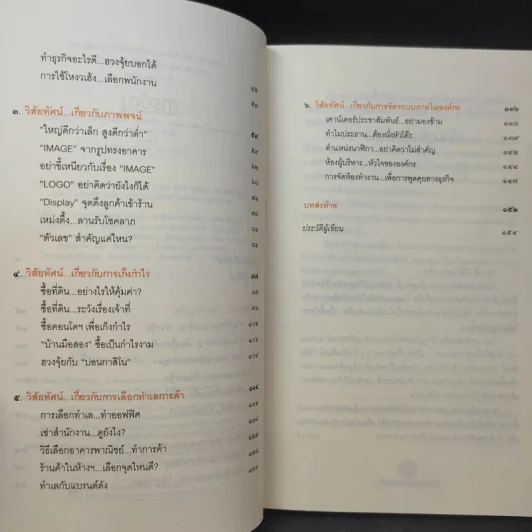 ทำธุรกิจอะไรดี...ฮวงจุ้ยบอกได้
การใช้โหงวเฮ้ง...เลือกพนักงาน
๓. วิสัยทัศน์...เกี่ยวกับภาพพจน์
"ใหญ่ดีกว่าเล็ก สูงดีกว่าต่ำ"
"IMAGE" จากรูปทรงอาคาร
อย่าขี้เหนียวกับเรื่อง "IMAGE"
"LOGO" อย่าคิดว่ายังไงก็ได้
"Display" จุดดึงลูกค้าเข้าร้าน
เหม่งตึ๊ง...ลานรับโชคลาภ
"ตัวเลข" สำคัญแค่ไหน?
๔. วิสัยทัศน์...เกี่ยวกับการเก็งกำไร
ซื้อที่ดิน...อย่างไรให้คุ้มค่า?
ซื้อที่ดิน...ระวังเรื่องเจ้าที่
ซื้อคอนโดฯ เพื่อเก็งกำไร
"บ้านมือสอง" ซื้อเป็นกำไรงาม
ฮวงจุ้ยกับ "บ่อนกาสิโน"
๕. วิสัยทัศน์...เกี่ยวกับการเลือกทำเลการค้า
การเลือกทำเล...ทำออฟฟิศ
เช่าสำนักงาน...ดูยังไง?
วิธีเลือกอาคารพาณิชย์...ทำการค้า
ร้านค้าในห้างฯ...เลือกจุดไหนดี?
ทำเลกับแบรนด์ดัง
๖. วิสัยทัศน์...เกี่ยวกับการจัดระบบภายในองค์กร
เคาน์เตอร์ประชาสัมพันธ์...อย่ามองข้าม
ทำไมประธาน...ต้องนั่งหัวโต๊ะ
ตำแหน่งนาฬิกา...อย่าคิดว่าไม่สำคัญ ๑๔๒
ห้องผู้บริหาร...หัวใจขององค์กร
การจัดห้องทำงาน...เพื่อการพูดคุยทางธุรกิจ ๑๔๗
บทส่งท้าย ๑๕๒
ประวัติผู้เขียน ๑๕๔